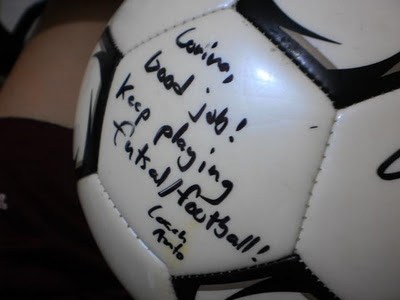 Corina,
Good job!
Keep playing
futsal/football!
Coach